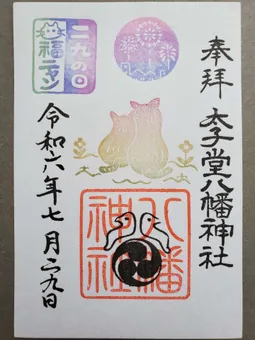 奉拝
太子堂八幡神社
八幡
神社
二九の日
福ニャン
令和六年七月二九日